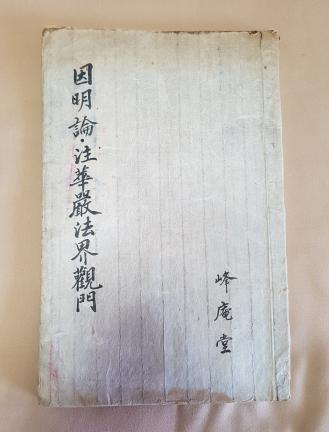 因明論·注華嚴法界觀門
峰庵堂